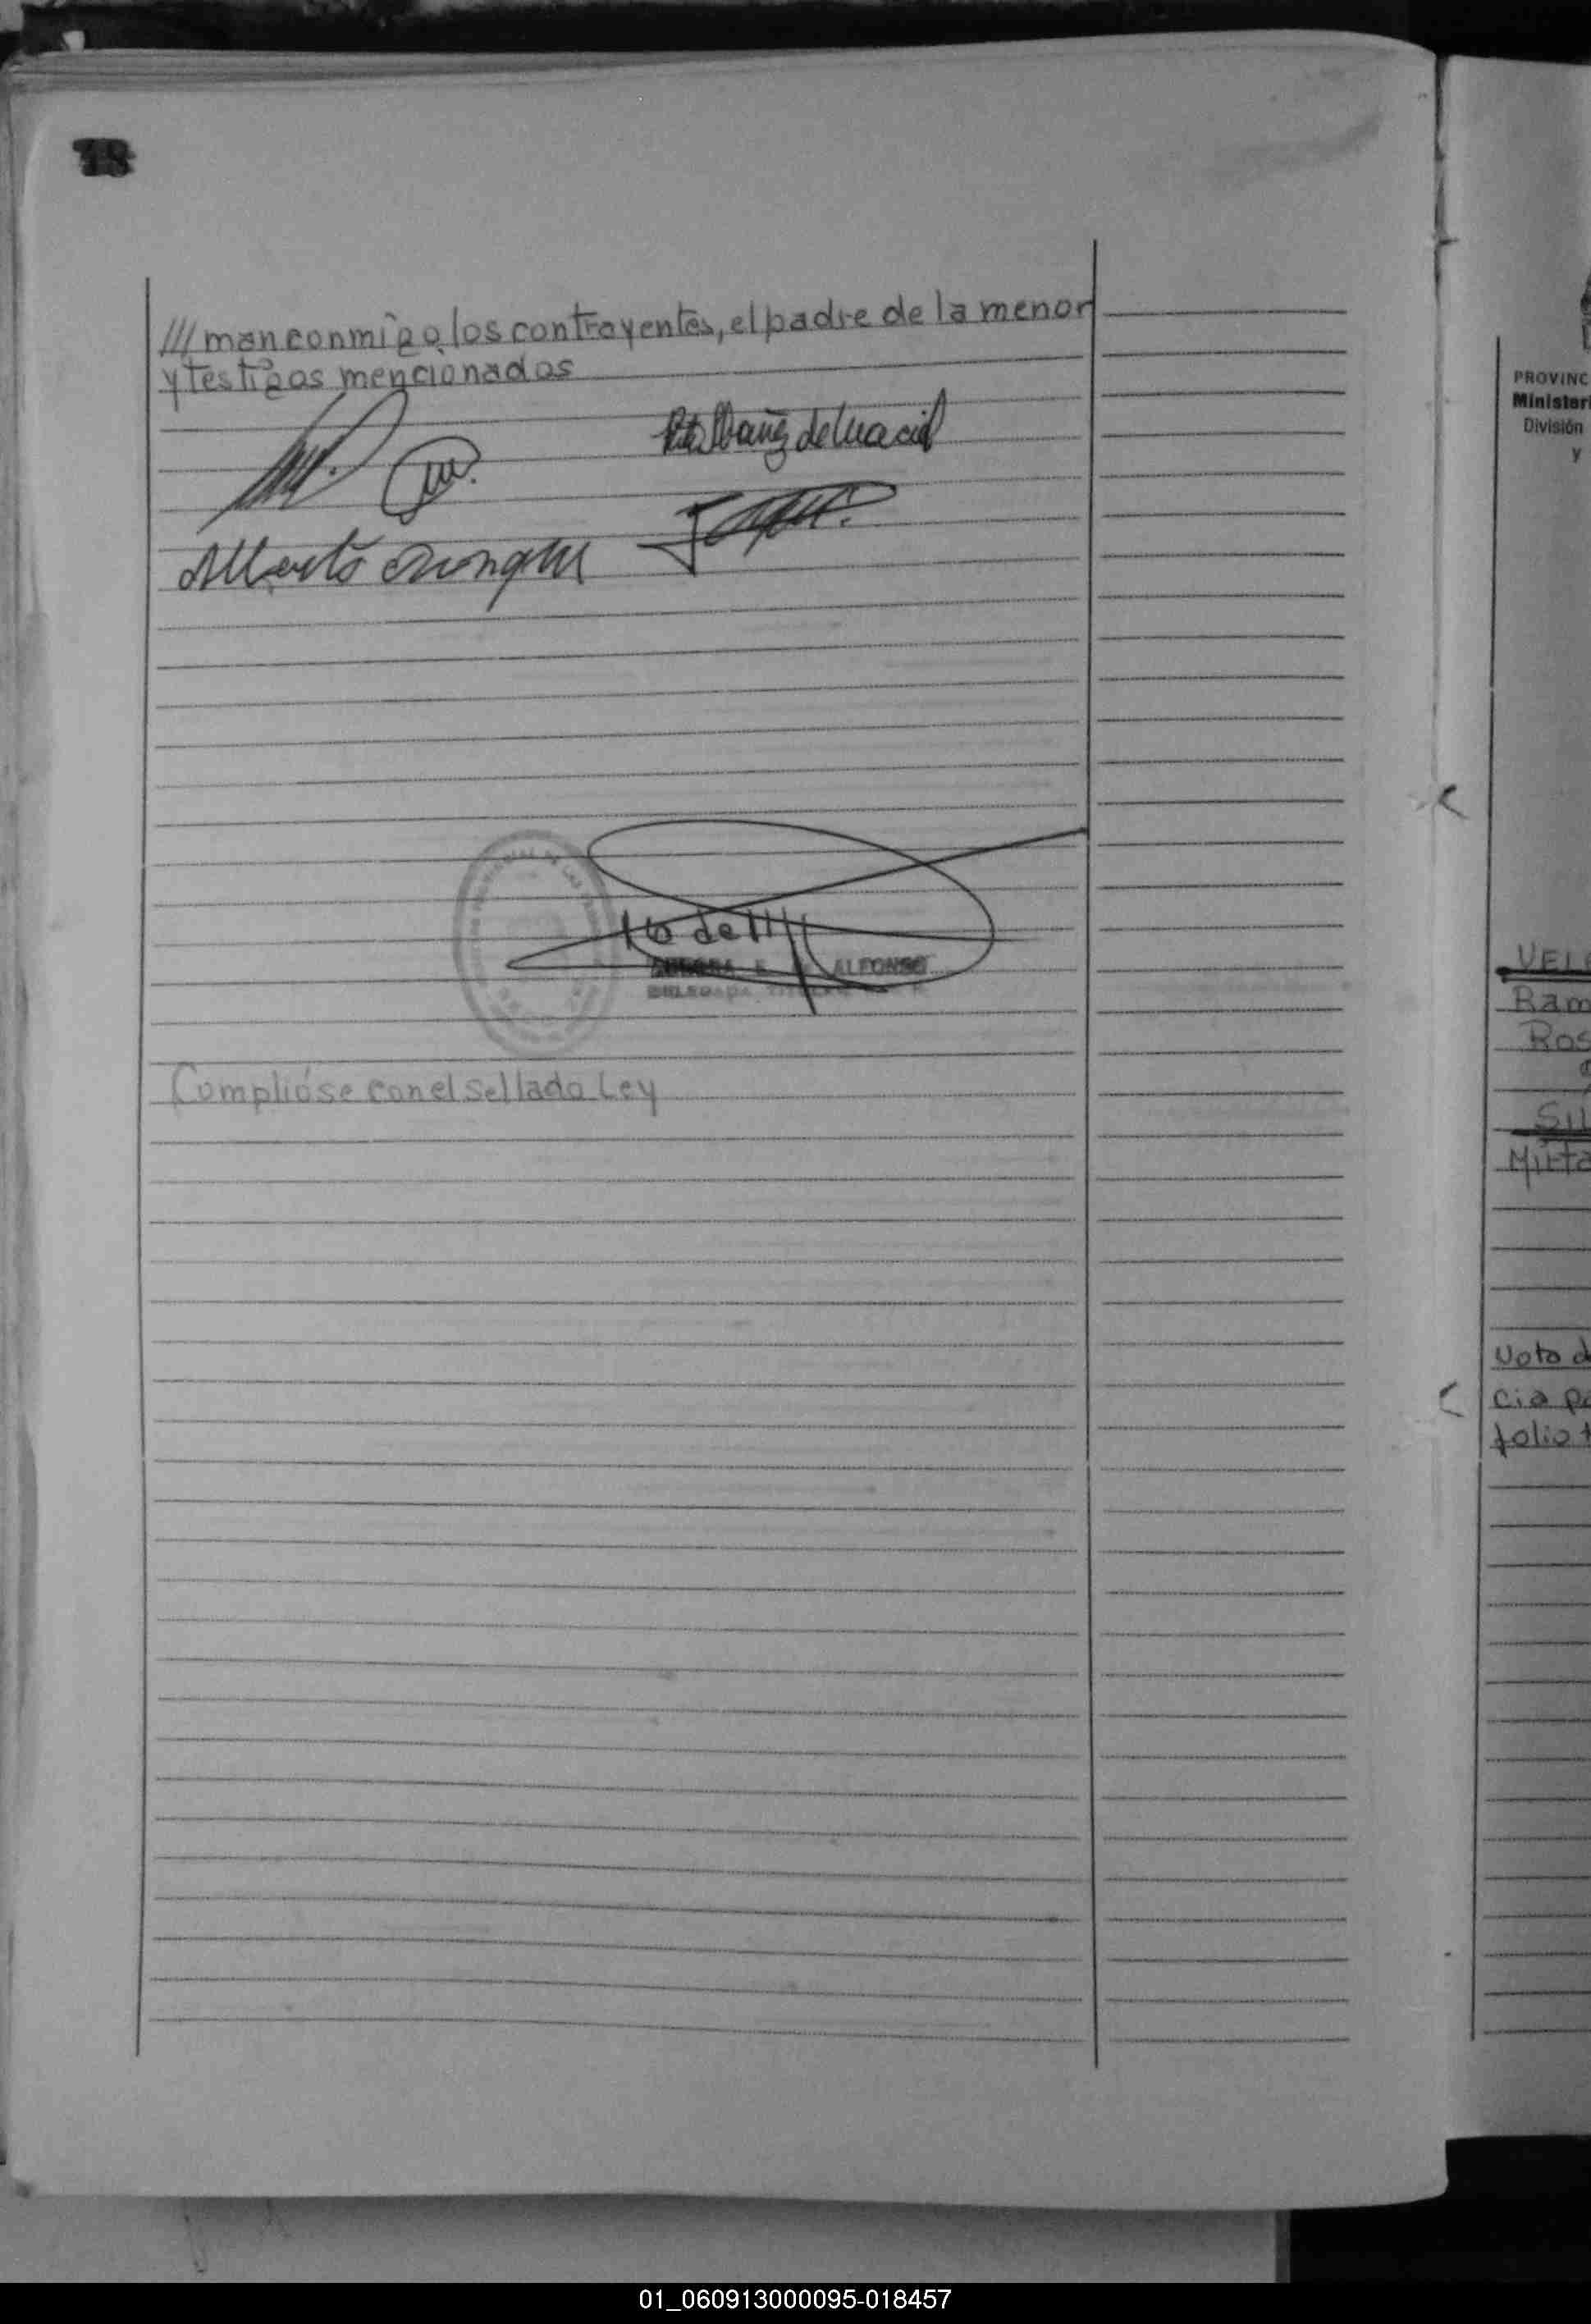 18
/// man conmigo, los contrayentes, el padre de la menor
y testigos mencionados
de Macid
Alberto
16 de
ALFONSO
DELEGADA TITULAR
Cumplióse con el Sellado Ley
PROVINC
Minister
División
y
VEL
Ram
Ros
SIL
Mirta
Voto d
cia pa
folio t
01_060913000095-018457